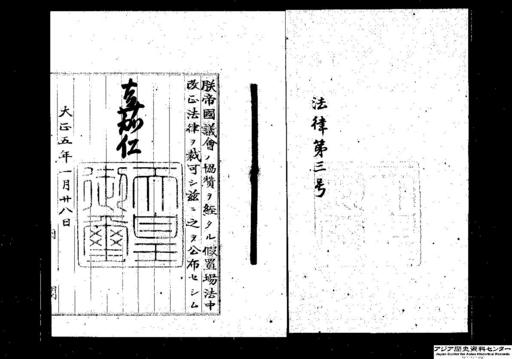 法律第三号
朕帝國議會ノ協贊ヲ經タル假置場法中
改正法律ヲ裁可シ茲ニ之ヲ公布セシム
嘉仁
天皇
御璽
大正五年一月廿八日
アジア歴史資料センター
Japan Center for Asian Historical Records